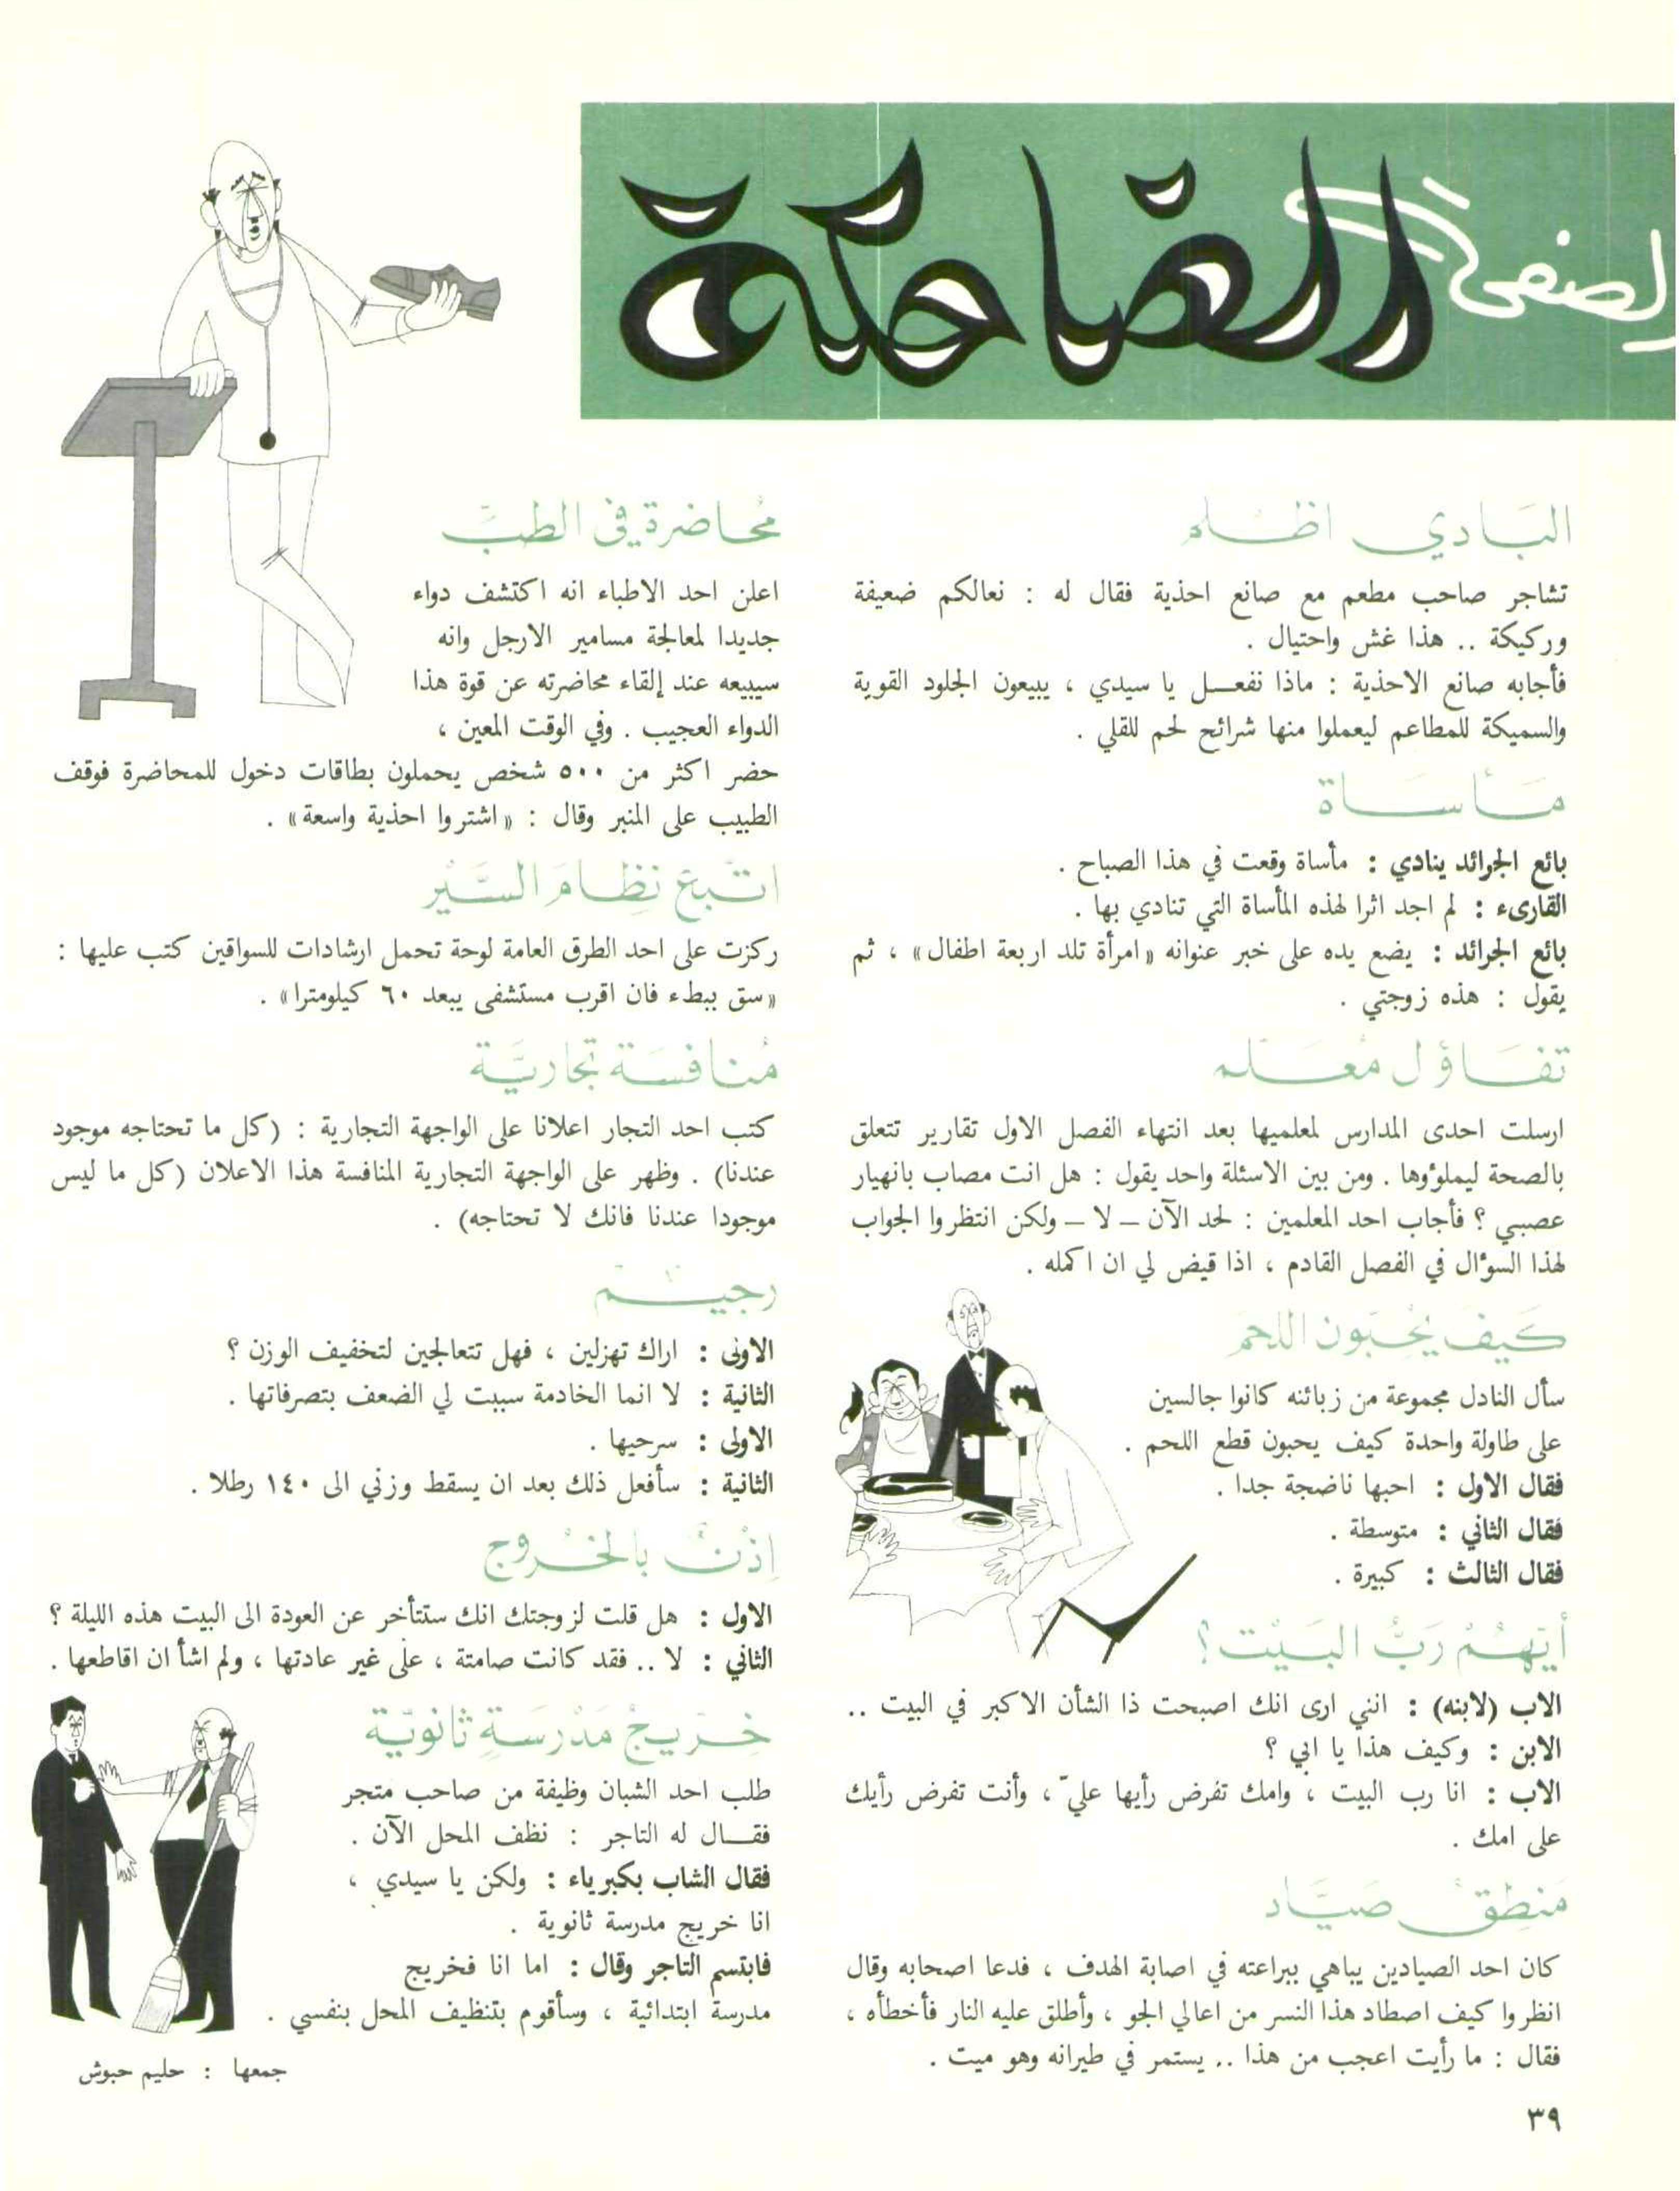 الصفحة الضاحكة
البَادي اظلم
تشاجر صاحب مطعم مع صانع احذية فقال له : نعالكم ضعيفة
وركيكة .. هذا غش واحتيال .
فأجابه صانع الاحذية : ماذا نفعـــل يا سيدي ، يبيعون الجلود القوية
والسميكة للمطاعم ليعملوا منها شرائح لحم للقلي .
مَـأسَـاة
بائع الجرائد ينادي : مأساة وقعت في هذا الصباح .
القارىء : لم اجد اثرا لهذه المأساة التي تنادي بها .
بائع الجرائد : يضع يده على خبر عنوانه «امرأة تلد اربعة اطفال» ، ثم
يقول : هذه زوجتي .
تفَـاؤل مُعَـلم
ارسلت احدى المدارس لمعلميها بعد انتهاء الفصل الاول تقارير تتعلق
بالصحة ليملؤوها . ومن بين الاسئلة واحد يقول : هل انت مصاب بانهيار
عصبي ؟ فأجاب احد المعلمين : لحد الآن – لا – ولكن انتظروا الجواب
لهذا السؤال في الفصل القادم ، اذا قيض لي ان اكمله .
كَيفَ يُحِبّون اللحمَ
سأل النادل مجموعة من زبائنه كانوا جالسين
على طاولة واحدة كيف يحبون قطع اللحم .
فقال الاول : احبها ناضجة جدا .
فقال الثاني : متوسطة .
فقال الثالث : كبيرة .
أيّهُـمْ رَبُّ البَـيْت ؟
الاب (لابنه) : انني ارى انك اصبحت ذا الشأن الاكبر في البيت ..
الابن : وكيف هذا يا ابي ؟
الاب : انا رب البيت ، وامك تفرض رأيها عليّ ، وأنت تفرض رأيك
على امك .
مَنطِقُ صَيَّاد
كان احد الصيادين يباهي ببراعته في اصابة الهدف ، فدعا اصحابه وقال
انظروا كيف اصطاد هذا النسر من اعالي الجو ، وأطلق عليه النار فأخطأه ،
فقال : ما رأيت اعجب من هذا .. يستمر في طيرانه وهو ميت .
٣٩
مُحَـاضرة في الطبّ
اعلن احد الاطباء انه اكتشف دواء
جديدا لمعالجة مسامير الارجل وانه
سيبيعه عند إلقاء محاضرته عن قوة هذا
الدواء العجيب . وفي الوقت المعين ،
حضر اكثر من ٥٠٠ شخص يحملون بطاقات دخول للمحاضرة فوقف
الطبيب على المنبر وقال : «اشتروا احذية واسعة» .
اتّبِعْ نِظَـامَ السَّـيْر
ركزت على احد الطرق العامة لوحة تحمل ارشادات للسواقين كتب عليها :
«سق ببطء فان اقرب مستشفى يبعد ٦٠ كيلومترا» .
مُنـَافسَـة تجاريَّـة
كتب احد التجار اعلانا على الواجهة التجارية : (كل ما تحتاجه موجود
عندنا) . وظهر على الواجهة التجارية المنافسة هذا الاعلان (كل ما ليس
موجودا عندنا فانك لا تحتاجه) .
رجيـــم
الاولى : اراك تهزلين ، فهل تتعالجين لتخفيف الوزن ؟
الثانية : لا انما الخادمة سببت لي الضعف بتصرفاتها .
الاولى : سرحيها .
الثانية : سأفعل ذلك بعد ان يسقط وزني الى ١٤٠ رطلا .
إذْنٌ بالخُـروج
الاول : هل قلت لزوجتك انك ستتأخر عن العودة الى البيت هذه الليلة ؟
الثاني : لا .. فقد كانت صامتة ، على غير عادتها ، ولم اشأ ان اقاطعها .
خِـرّيجُ مَدْرسَـةٍ ثانويّة
طلب احد الشبان وظيفة من صاحب متجر
فقـــال له التاجر : نظف المحل الآن .
فقال الشاب بكبرياء : ولكن يا سيدي ،
انا خريج مدرسة ثانوية .
فابتسم التاجر وقال : اما انا فخريج
مدرسة ابتدائية ، وسأقوم بتنظيف المحل بنفسي .
جمعها : حليم حبوش